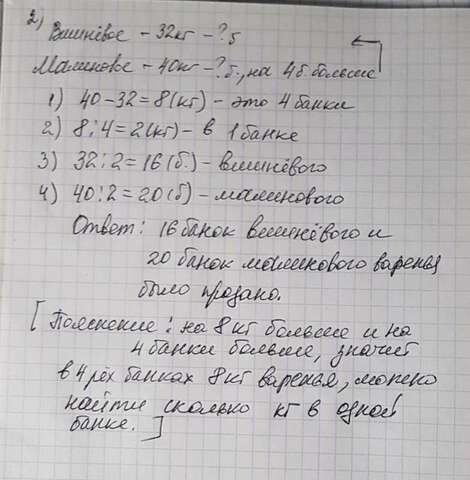 2)
Вишнёвое – 32кг – ? б
Малиновое – 40кг – ? б., на 4 б. больше
1) 40 – 32 = 8 (кг) – это 4 банки
2) 8 : 4 = 2 (кг) – в 1 банке
3) 32 : 2 = 16 (б.) – вишнёвого
4) 40 : 2 = 20 (б) – малинового
Ответ: 16 банок вишнёвого и
20 банок малинового варенья
было продано.
[ Пояснение: на 8 кг больше и на
4 банки больше, значит
в 4рёх банках 8 кг варенья, можно
найти сколько кг в одной
банке. ]